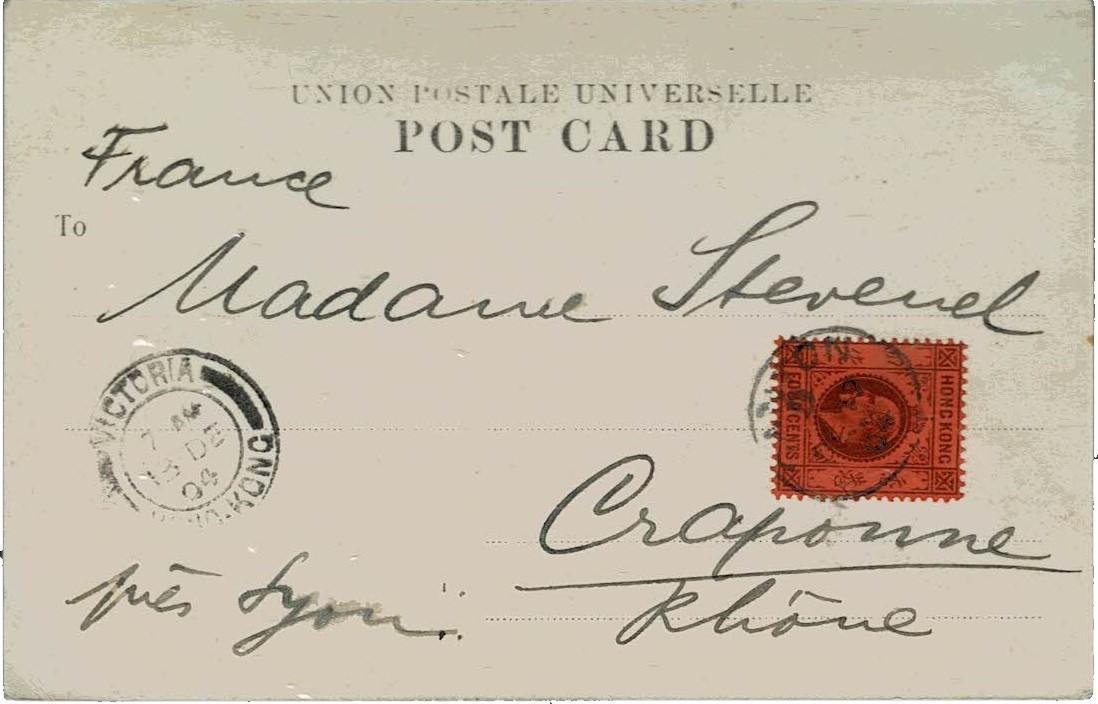 UNION POSTALE UNIVERSELLE
POST CARD
France
To
Madame Stevenel
VICTORIA
7 AM
DE
04
HONG KONG
FOUR CENTS
HONG KONG
Craponne
Rhône
près Lyon